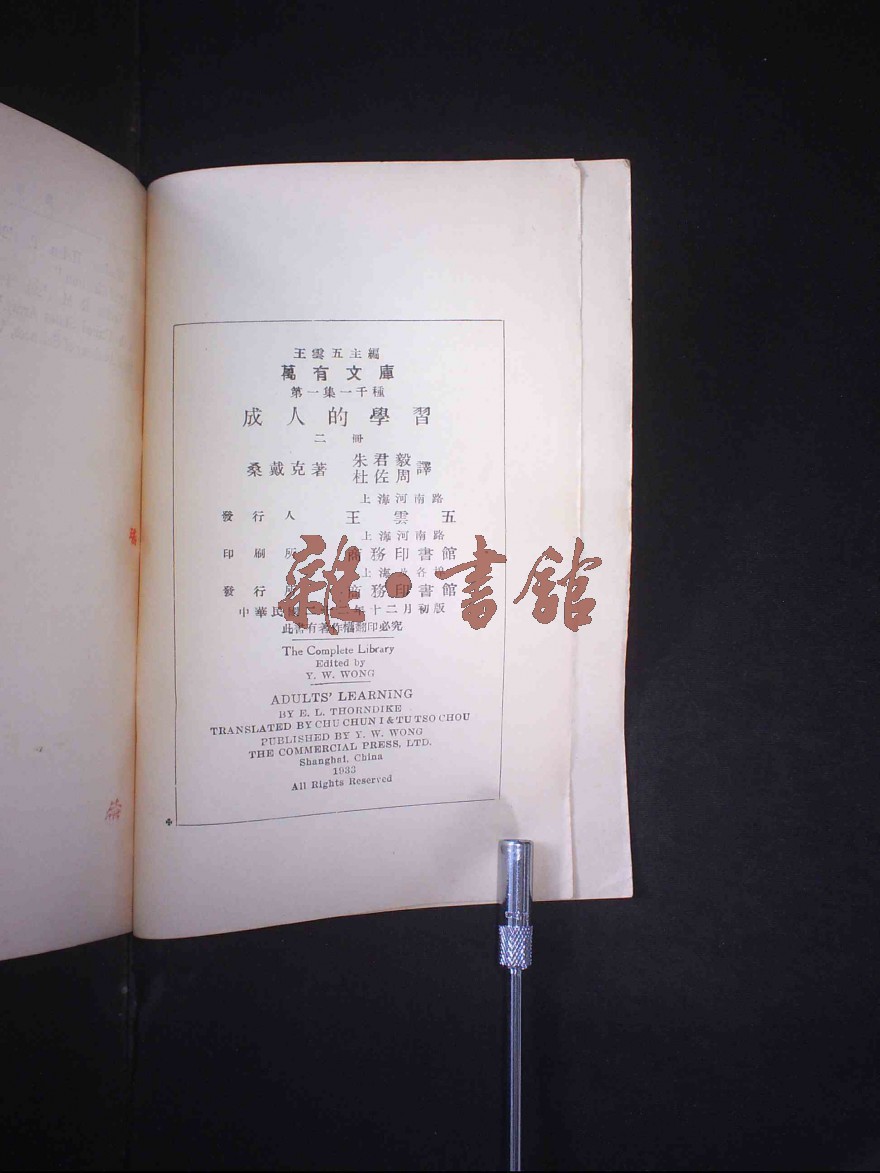 王雲五主編
萬有文庫
第一集一千種
成人的學習
二冊
桑戴克著 朱君毅 杜佐周 譯
上海河南路
發行人 王雲五
上海河南路
印刷所 商務印書館
上海及各埠
發行所 商務印書館
中華民國二十二年十二月初版
此書有著作權翻印必究
The Complete Library
Edited by
Y. W. WONG
ADULTS' LEARNING
BY E. L. THORNDIKE
TRANSLATED BY CHU CHUN I & TU TSO CHOU
PUBLISHED BY Y. W. WONG
THE COMMERCIAL PRESS, LTD.
Shanghai, China
1933
All Rights Reserved
雜·書館